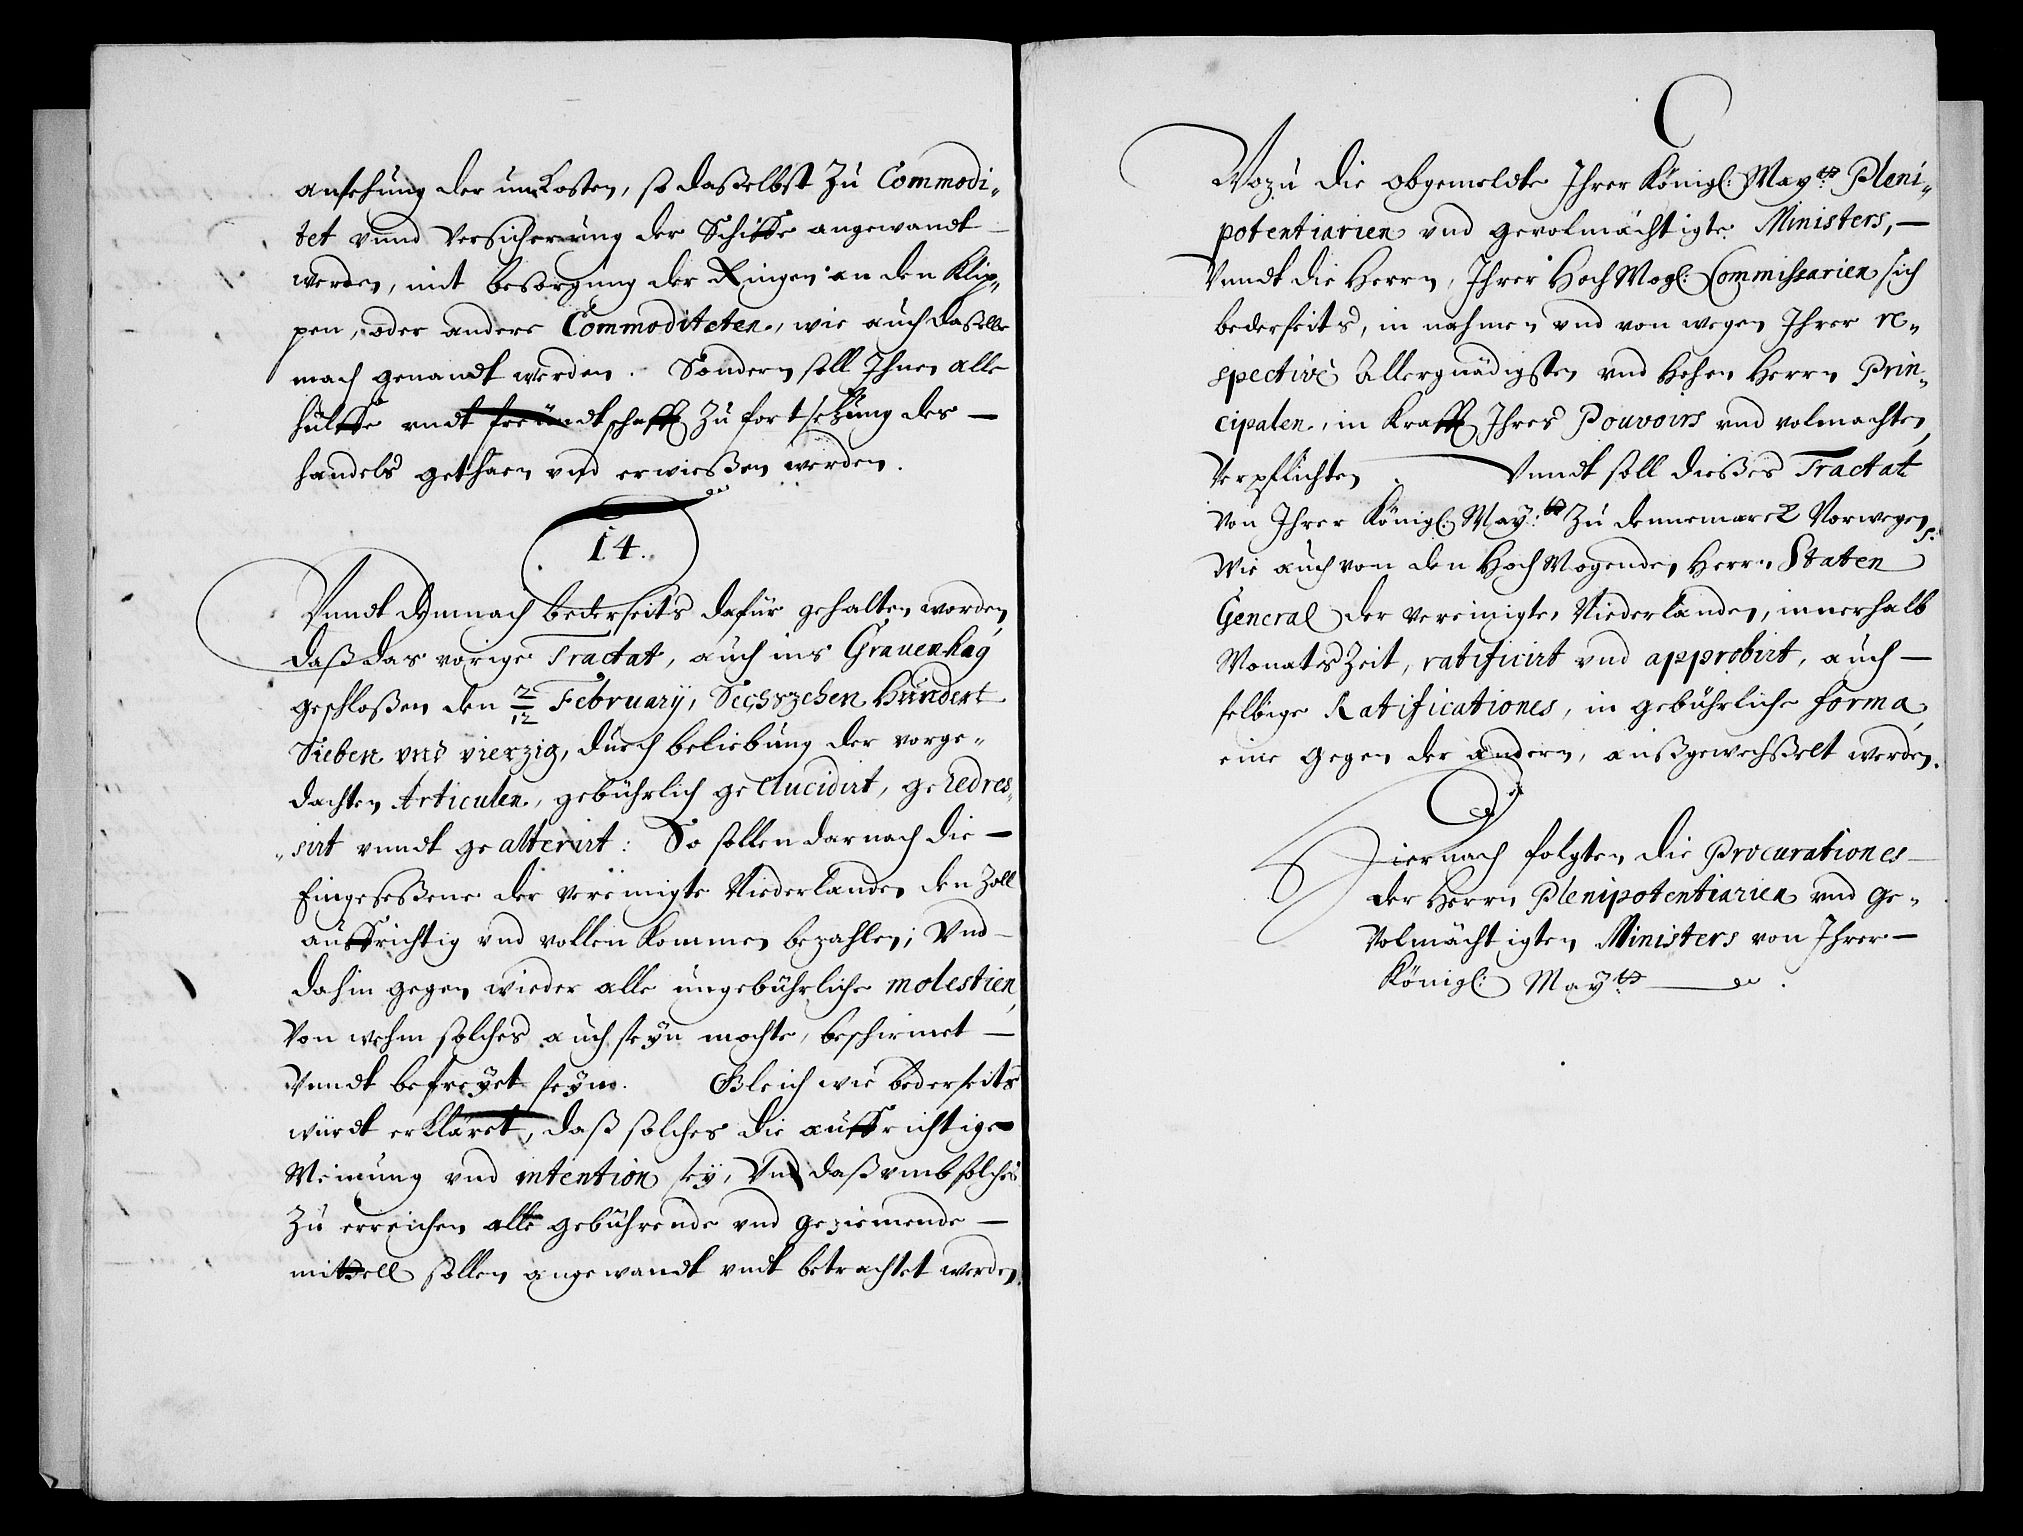 ansehung der unkosten, so daßelbst zu Commodi-
tet vnnd versicherung der Schiffe angewandt
werden, mit besorgung der Ringen an den Klip-
pen, oder andere Commoditeten, wie auch daselbe
mach genandt werden. Sondern soll Ihnen alle
hülffe vndt freündtschafft zu fortsetzung des
handels gethaen vnd erwießen werden.
14.
Vnndt demnach bederseits dafür gehalten worden,
daß das vorige Tractat, auch ins Grauenhag
geschloßen den 2/12 February, Sechszehen Hundert
Sieben vnd vierzig, durch beliebung der vorge-
dachten Articulen, gebührlich geelucidirt, geredres-
sirt vnndt gealterirt: So sollen darnach die
Eingeseßene der vereinigte Niederlanden den Zoll
auffrichtig vnd vollenkommen bezahlen; Vnd
dahingegen wieder alle ungebührliche molestien,
von wehm solches auch seyn mochte, beschirmet
Vnndt befreyet seyn. Gleich wie bederseits
würdt erkläret, daß solches die auffrichtige
Meinung vnd intention sey, Vnd daß vmb solches
zu erreichen alle gebührende vnd geziemende
mittell sollen angewandt vndt betrachtet werden.
Wozu die obgemeldte Ihrer Königl: May:ts Pleni-
potentiarien vnd gevolmächtigte Ministers,
Vnndt die Herrn, Ihrer Hoch Mog: Commissarien sich
bederseits, in nahmen vnd von wegen Ihrer re-
spectivè Allergnädigsten vnd Hohen Herrn Prin-
cipalen, in Krafft Ihres Pouvoirs vnd volmachten,
Verpflichten. Vnndt soll dießes Tractat
von Ihrer Königl: May:ts zu Dennemarck Norwegen p.
Wie auch von den Hoch Mogenden Herrn Staten
General der vereinigten Niederlanden, innerhalb
Monats Zeit, ratificirt vnd approbirt, auch
selbige Ratificationes, in gebührliche forma,
eine gegen der andern, außgewechßelt werden.
Hiernach folgten die Procurationes
der Herrn Plenipotentiarien vnd Ge-
volmächtigten Ministers von Ihrer
Königl: May:ts